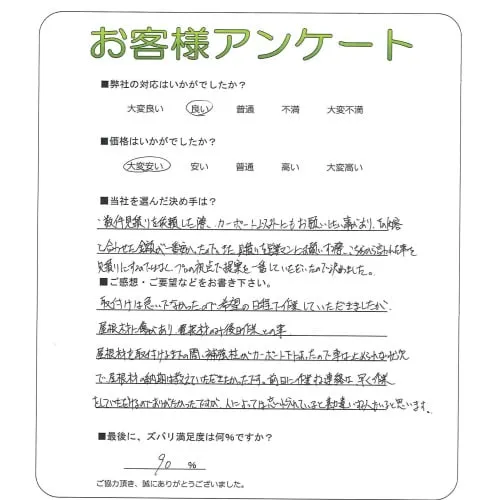 お客様アンケート
■弊社の対応はいかがでしたか?
大変良い 良い 普通 不満 大変不満
■価格はいかがでしたか?
大変安い 安い 普通 高い 大変高い
■当社を選んだ決め手は?
・数件見積りを依頼した際、カーポート以外にもお願いしたい事があり、
合わせた金額が一番安かったので。また、見積りを営業マンにお願いした際、こちらから言われた事を
見積りにするのではなく、プロの視点で提案を一番していただいたので決めました。
■ご感想・ご要望などをお書き下さい。
取付けは急いでなかったので希望の日程で作業していただきましたが、
屋根材に傷があり、屋根材のみ後日作業との事。
屋根材を取付けるまでの間、補強柱がカーポート下にあったので車は止められない状況
で屋根材の納期は教えていただきたかったです。前日に作業の連絡は、早く作業
をしていただけるのでありがたかったですが、人によっては忘れられていると勘違いする人がいると思います。
■最後に、ズバリ満足度は何%ですか?
90 %
ご協力頂き、誠にありがとうございました。